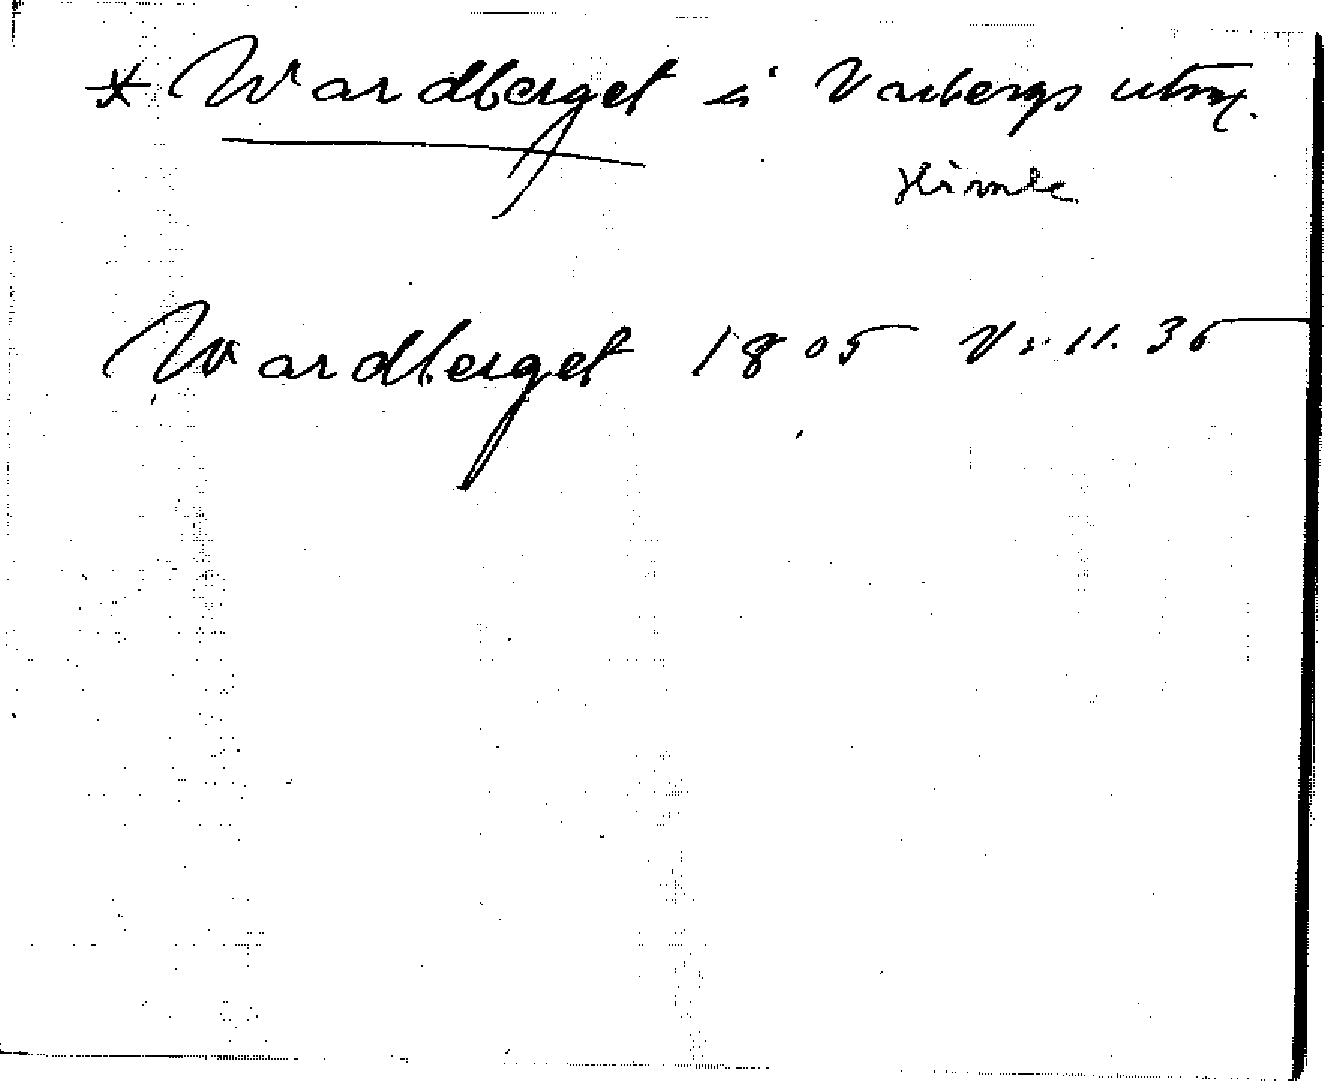 * Wardberget i Varbergs utmr.
Himle
Wardberget 1805 V: 11. 35